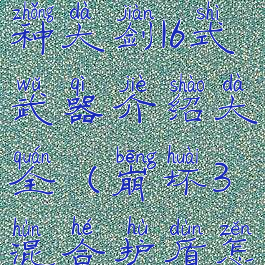 zhǒng dà jiàn shì
种大剑16式
wǔ qì jiè shào dà
武器介绍大
quán bēng huài
全（崩坏3
hùn hé hù dùn zěn
混合护盾怎